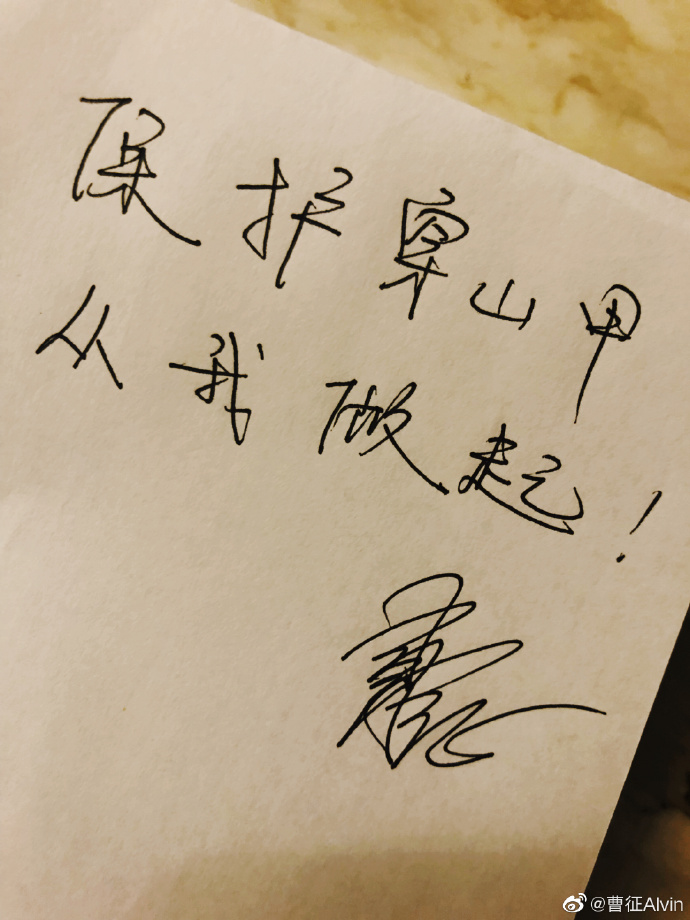 保护穿山甲
从我做起!
@曹征Alvin